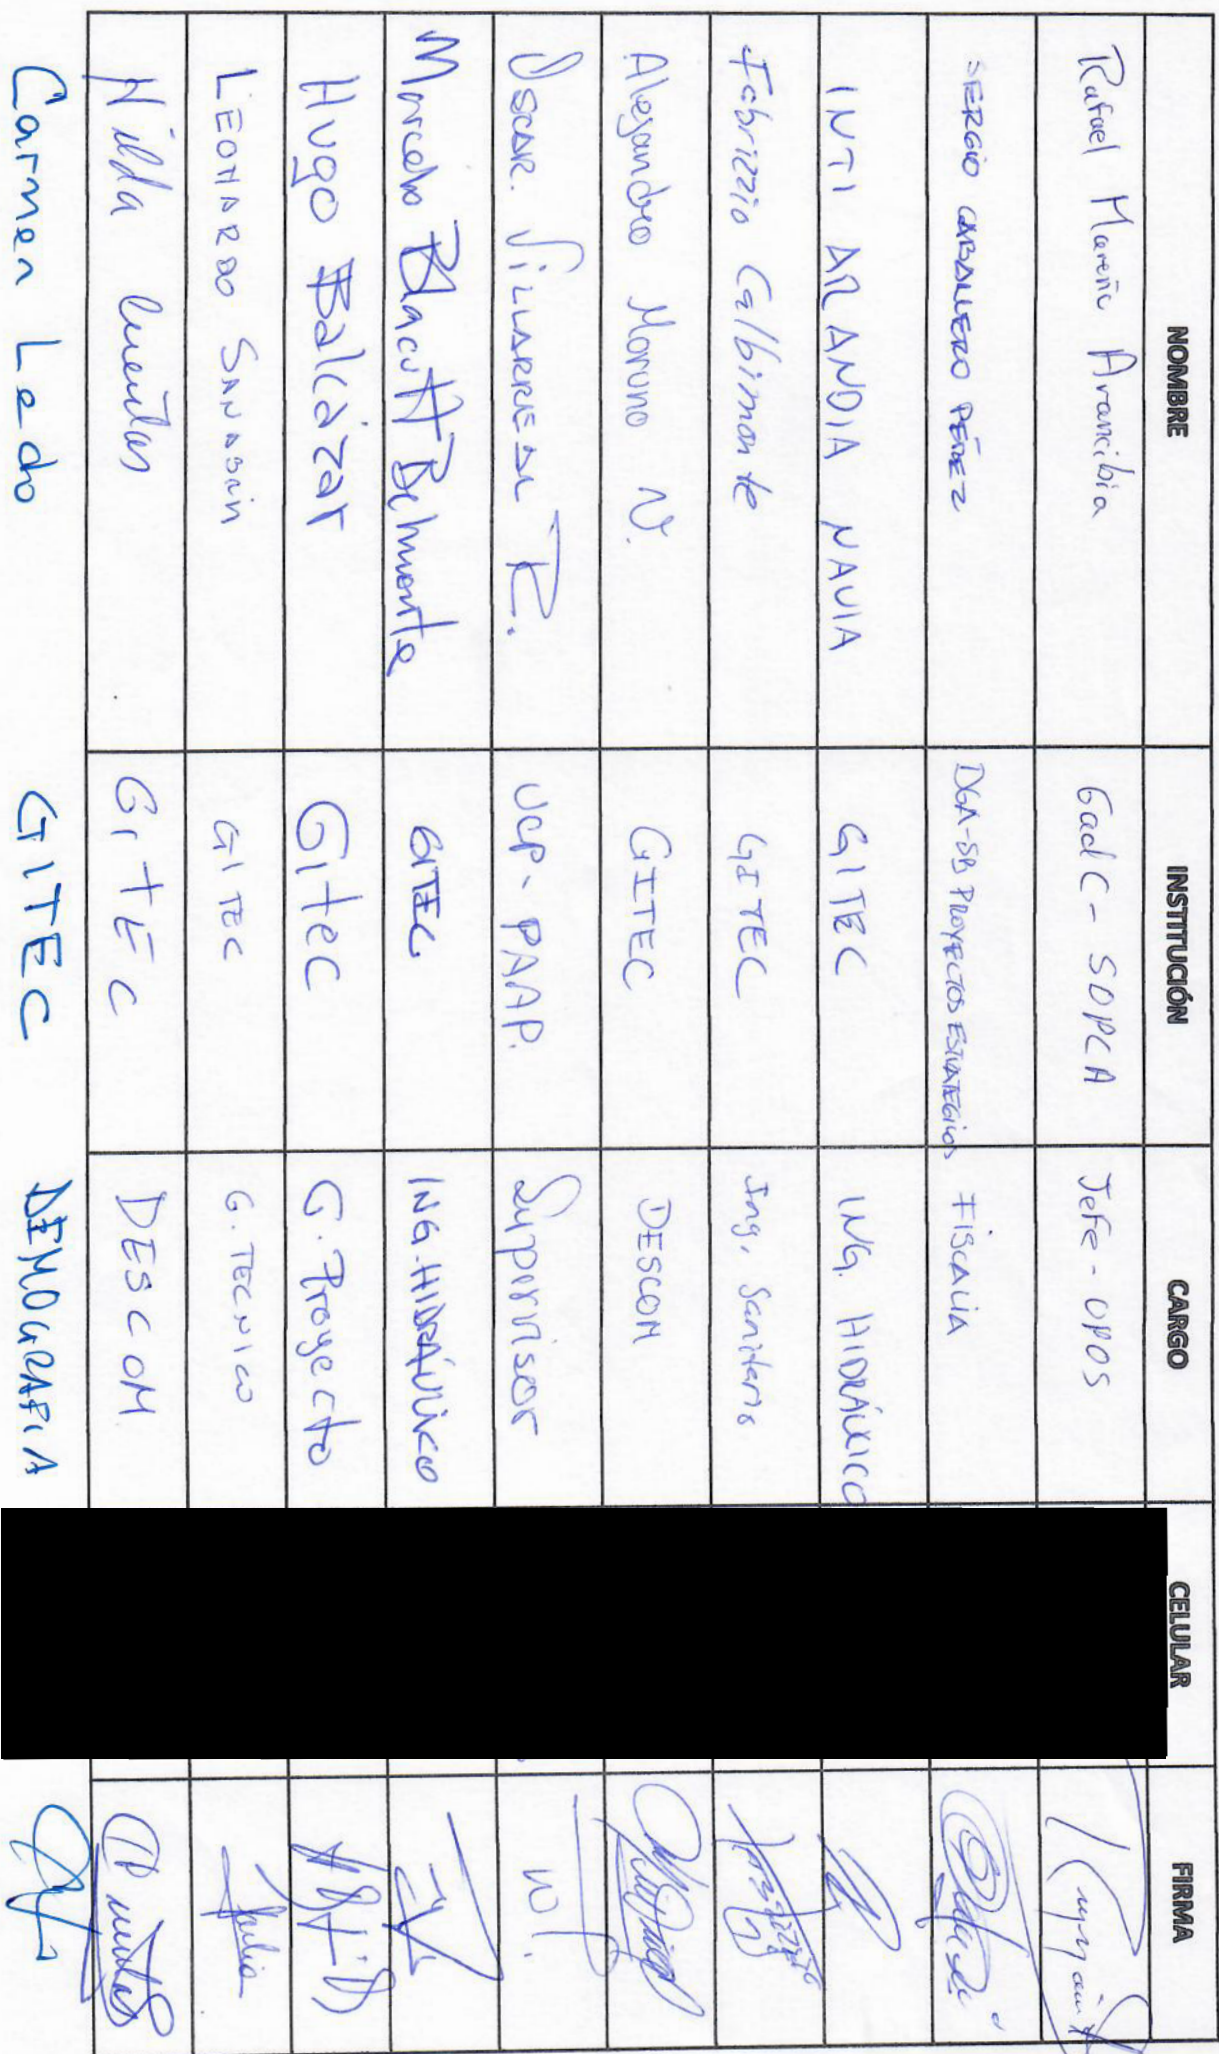 NOMBRE INSTITUCIÓN CARGO CELULAR FIRMA
Rafael Mareño Arancibia GadC - SDPCA Jefe - UPOS
SERGIO CABALLERO PÉREZ DGA-SB PROYECTOS ESTRATEGICOS FISCALIA
INTI ARANDIA NAVIA GITEC ING. HIDRÁULICO
Fabrizzio Calbimonte GITEC Ing. Sanitario
Alejandro Moruno N. GITEC DESCOM
OSCAR VILLARREAL R. UCP-PAAP. Supervisor
Marcelo Blacutt Belmonte GITEC ING. HIDRÁULICO
Hugo Balcázar GITEC G. Proyecto
LEONARDO SANABRIA GITEC G. TECNICO
Nilda Cuentas GITEC DESCOM
Carmen Ledo GITEC DEMOGRAFIA